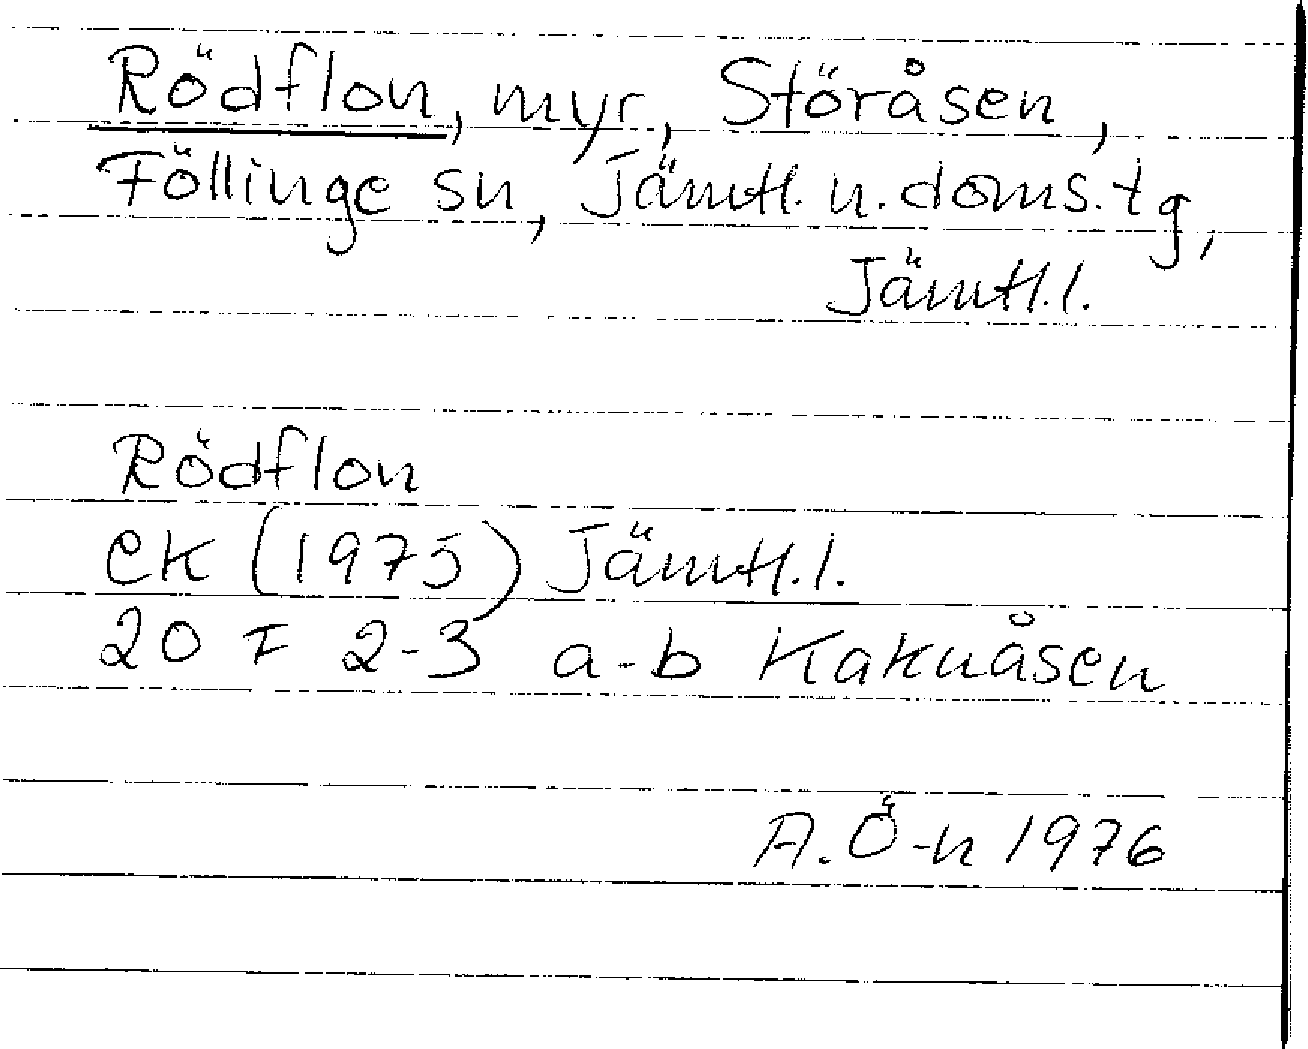 Rödflon, myr, Störåsen,
Föllinge sn, Jämtl. n. doms. tg,
Jämtl. l.
Rödflon
EK (1975) Jämtl. l.
20 F 2-3 a-b Kaknåsen
A. Ö-n 1976